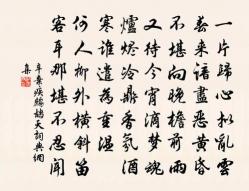 一片歸心擬亂雲
春來諳盡惡黃昏
不堪向晚檐前雨
又待今宵滴夢魂
爐燼冷鼎香氛酒
寒誰遣為重溫
何人柳外橫斜笛
客耳那堪不忍聞
辛棄疾鷓鴣天詞典網
集